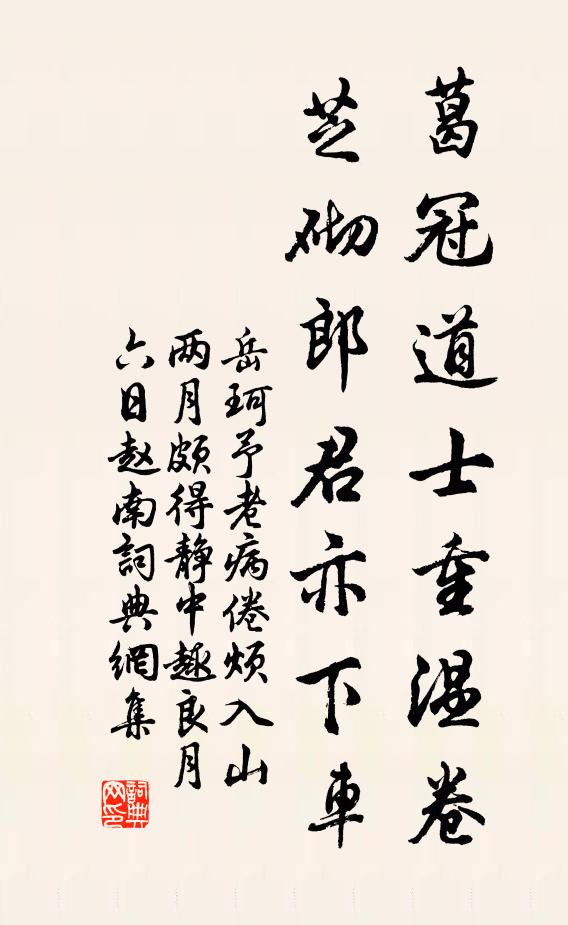 葛冠道士重温卷
芝砌郎君亦下車
岳珂予老病倦煩入山
两月頗得静中趣良月
六日赵南詞典網集
詞典
网印